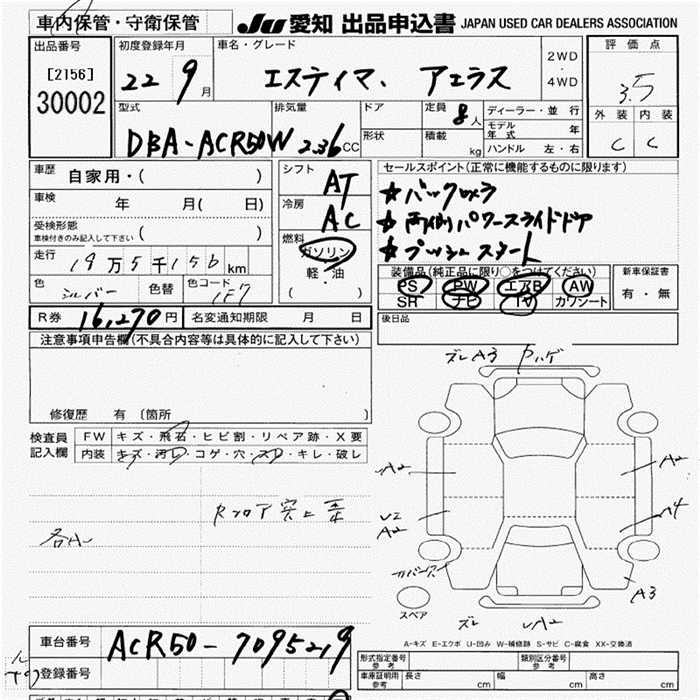 車内保管・守衛保管
JU 愛知 出品申込書 JAPAN USED CAR DEALERS ASSOCIATION
出品番号
[2156]
30002
初度登録年月
22 9月
車名・グレード
エスティマ、アエラス
2WD
・
4WD
評価点
3.5
外装 内装
C C
型式
DBA-ACR50W
排気量
2.36CC
ドア
形状
定員
8人
積載
kg
ディーラー・並行
モデル年式 年
ハンドル 左・右
車歴 自家用・( )
車検 年 月(日)
受検形態
車検付きのみ記入して下さい ( )
走行 19万5千156km
色 シルバー 色替 色コード 1F7
シフト
AT
冷房
AC
燃料
ガソリン
軽・油
( )
セールスポイント(正常に機能するものに限ります)
★バックカメラ
★両側パワースライドドア
★プッシュスタート
装備品(純正品に限り○をつけてください)
PS PW エアB AW
SR ナビ TV カワシート
新車保証書
有・無
R券 16,270円 名変通知期限 月 日
後日品
注意事項申告欄(不具合内容等は具体的に記入して下さい)
修復歴 有 〔箇所 〕
検査員記入欄
FW キズ・飛石・ヒビ割・リペア跡・X要
内装 キズ・汚レ・コゲ・穴・スレ・キレ・破レ
ズレ A3 カハゲ
A2
A2
U2
A2
A4
A3
ズレ
A2
スペア
A-キズ E-エクボ U-凹み W-補修跡 S-サビ C-腐食 XX-交換済
車台番号 ACR50-7095219
登録番号
形式指定番号
参考
類別区分番号
参考
車庫証明用
参考
長さ cm 幅 cm 高さ cm